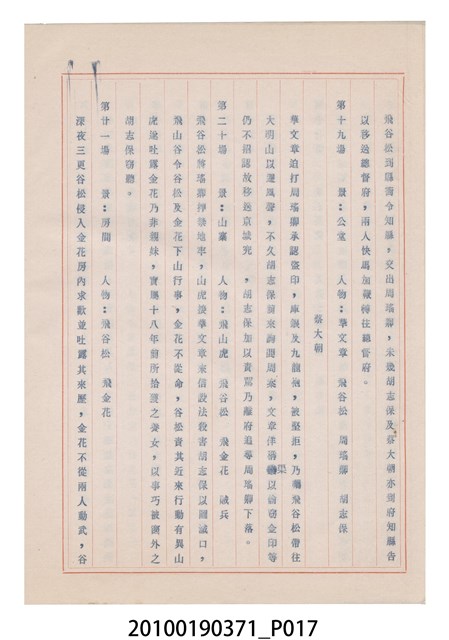 飛谷松到縣衙令知縣，交出周瑤卿，未幾胡志保及蔡大朝亦到府知縣告
以移送總督府，兩人快馬加鞭轉往總督府。
第十九場　景：公堂　人物：華文章　飛谷松　周瑤卿　胡志保
蔡大朝
華文章迫打周瑤卿承認盜印，庫銀及九龍袍，被堅拒，乃囑飛谷松帶往
大朝山以避風聲，不久胡志保前來詢問周案，文章佯稱以偷竊金印等
果
仍不招認故移送京城究，胡志保加以責罵乃離府追尋周瑤卿下落。
第二十場　景：山寨　人物：飛山虎　飛谷松　飛金花　賊兵
飛谷松將瑤卿押禁地牢，山虎接華文章來信設法殺害胡志保以圖滅口，
飛山谷令谷松及金花下山行事，金花不從命，谷松責其近來行動有異山
虎進吐露金花乃非親妹，實屬十八年前所拾護之養女，以事巧被窗外之
胡志保竊聽。
第廿一場　景：房間　人物：飛谷松　飛金花
深夜三更谷松侵入金花房內求歡並吐露其來歷，金花不從兩人動武，谷
20100190371_P017